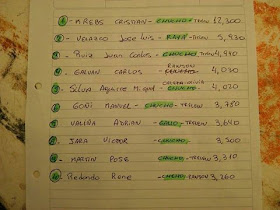 1 - MREBS CRISTIAN - CHUCHO - TRELEW 12,300
2 - VELAZCO JOSE LUIS - RAYA - TRELEW 5,930
3 - RUIZ JUAN CARLOS - CHUCHO TRELEW 4,990
4 - GALVAN CARLOS - RAWSON 4,030
5 - Silva Aguirre Miguel - CHUCHO - 4,020
6 - GODI MANUEL - CHUCHO - TRELEW 3,980
7 - VALEÑA ADRIAN - GALLO - TRELEW 3,640
8 - JARA VICTOR CHUCHO 3,300
9 - MARTIN POSE - CHUCHO - TRELEW 3,310
10 - Redondo Rene - CHUCHO RAWSON 3,260